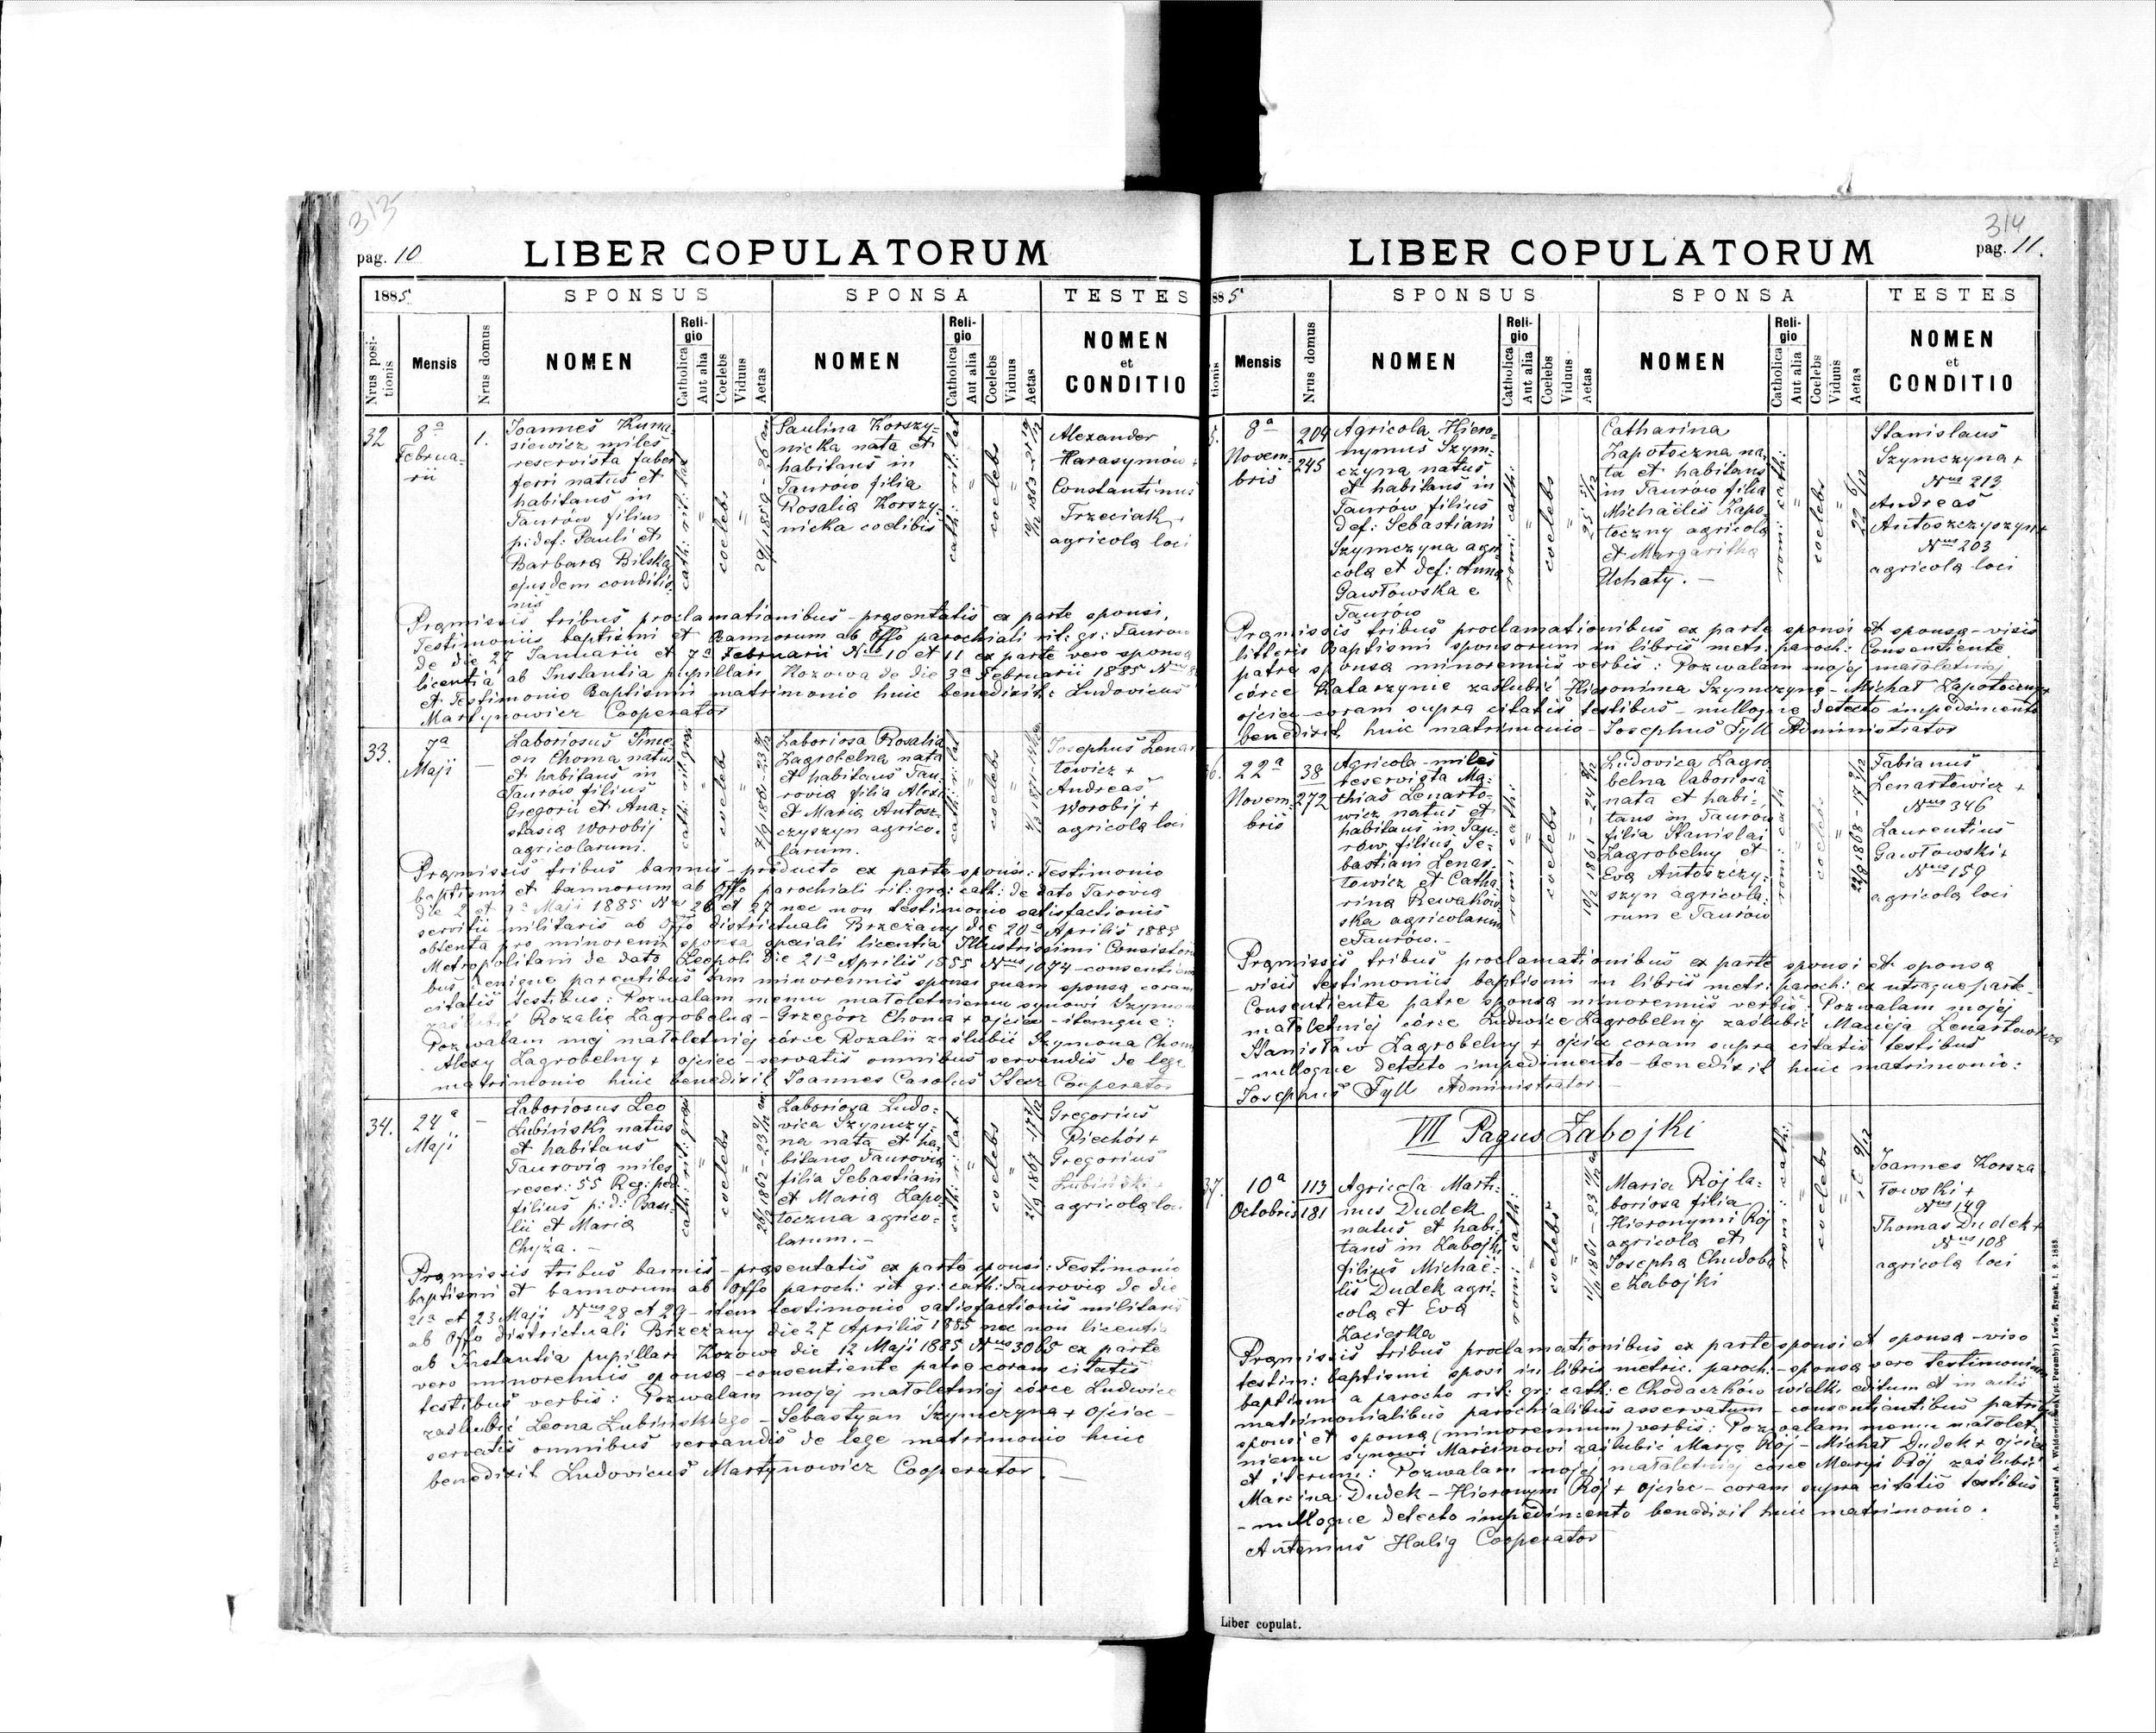 313
pag. 10
LIBER COPULATORUM
1885
SPONSUS
SPONSA
TESTES
Nrus positionis
Mensis
Nrus domus
NOMEN
Religio
Catholica
Aut alia
Coelebs
Viduus
Aetas
NOMEN
Religio
Catholica
Aut alia
Coelebs
Viduus
Aetas
NOMEN
et
CONDITIO
32
8a
Februa-
rii
1.
Joannes Kuna-
siewicz miles
reservista faber
ferri natus et
habitans in
Taurów filius
p: def: Pauli et
Barbara Bilska
ejusdem conditio-
nis
cath: rit: lat
coelebs
Paulina Korszy-
nicka nata et
habitans in
Taurów filia
Rosalia Korszy-
nicka coelibis
cath: rit: lat
coelebs
Alexander
Harasymów +
Constantinus
Trzeciak +
agricola loci
Pramissis tribus proclamationibus - prasentatis ex parte sponsi,
Testimoniis baptismi et Bannorum ab Offo parochiali rit: gr: Taurow
de die 27 Januarii et 7a Februarii Nris 10 et 11 ex parte vero sponsa
licentia ab Instantia pupillari Kozowa de die 3a Februarii 1885
et Testimonio Baptismi matrimonio huic benedixit: Ludovicus
Martynowicz Cooperator
33.
7a
Maji
Laboriosus Sime-
on Choma natus
et habitans in
Taurów filius
Gregorii et Ana-
stasia Worobij
agricolarum.
coelebs
Laboriosa Rosalia
Zagrobelna nata
et habitans Tau-
rovia filia Alexi
et Maria Antosz-
czyszyn agrico-
larum.
coelebs
Josephus Lenar
towicz +
Andreas
Worobij +
agricola loci
Pramissis tribus bannis - producto ex parte sponsi: Testimonio
baptismi et bannorum ab Offo parochiali rit: gra: cath: de dato Tarovia
die 2 et Maji 1885 Nris 26 et 27 nec non testimonio satisfactionis
servitii militaris ab Offo districtuali Brzeżany die 20a Aprilis 1885
obtenta pro minorenni sponsa speciali licentia Illustrissimi Consistorii
Metropolitani de dato Leopoli die 21a Aprilis 1885 Nrus 1074 - consentien
bus denique parentibus tam minorennis sponsi quam sponsa coram
citatis testibus: Pozwalam memu małoletniemu synowi Szymon
zaślubić Rozalię Zagrobelną - Grzegórz Choma + ojciec - itemque:
Pozwalam mej małoletniej córce Rozalii zaślubić Szymona Chom
Alexy Zagrobelny + ojciec - servatis omnibus servandis de lege
matrimonio huic benedixit Joannes Carolus Cooperator
34.
24a
Maji
Laboriosus Leo
Łubiński natus
et habitans
Taurovia miles
reser: 55 Reg: ped.
filius p: d: Basi-
lii et Maria
Chyża. -
coelebs
Laboriosa Ludo-
vica Szymczy-
na nata et ha-
bitans Taurovia
filia Sebastiani
et Maria Zapo-
toczna agrico-
larum. -
coelebs
Gregorius
Piechór +
Gregorius
Łubiński +
agricola loci
Pramissis tribus bannis - prasentatis ex parte sponsi: Testimonio
baptismi et bannorum ab Offo paroch: rit gr: cath: Taurovia de die
21a et 23 Maji Nris 28 et 29 - item testimonio satisfactionis militaris
ab Offo districtuali Brzeżany die 27 Aprilis 1885 nec non licentia
ab Instantia pupillari Kozowa die 12 Maji 1885 Nrus 3065 ex parte
vero minorennis sponsa - consentiente patre coram citatis
testibus verbis: Pozwalam mojej małoletniej córce Ludwice
zaślubić Leona Łubińskiego - Sebastyan Szymczyna + ojciec -
servatis omnibus servandis de lege matrimonio huic
benedixit Ludovicus Martynowicz Cooperator. -
314
pag. 11.
LIBER COPULATORUM
885
SPONSUS
SPONSA
TESTES
tionis
Mensis
Nrus domus
NOMEN
Religio
Catholica
Aut alia
Coelebs
Viduus
Aetas
NOMEN
Religio
Catholica
Aut alia
Coelebs
Viduus
Aetas
NOMEN
et
CONDITIO
5.
8a
Novem-
bris
209
245
Agricola Hiero-
nymus Szym-
czyna natus
et habitans in
Taurów filius
def: Sebastiani
Szymczyna agri
cola et def: Anna
Gawłowska e
Taurów
rom: cath:
coelebs
Catharina
Zapotoczna na-
ta et habitans
in Taurów filia
Michaelis Zapo-
toczny agricola
et Margaritha
Uchaty. -
rom: cath:
coelebs
22 6/12
Stanislaus
Szymczyna +
Nrus 213
Andreas
Antoszczyszyn +
Nrus 203
agricola loci
Pramissis tribus proclamationibus ex parte sponsi et sponsa - visis
litteris Baptismi sponsorum in libris metr: paroch: Consentiente
patre sponsa minorennis verbis: Pozwalam mojej małoletniej
córce Katarzynie zaślubić Hieronima Szymczyna - Michał Zapotoczny +
ojciec - coram supra citatis testibus - nulloque detecto impedimento
benedixit huic matrimonio - Josephus Tyll Administrator
6.
22a
Novem-
bris
38
272
Agricola - miles
reservista Ma-
thias Lenarto-
wicz natus et
habitans in Tau-
rów filius Se-
bastiani Lenar-
towicz et Catha-
rina Rewakow
ska agricolarum
e Taurów. -
rom: cath:
coelebs
Ludovica Zagro
belna laboriosa
nata et habi-
tans in Taurów
filia Stanislai
Zagrobelny et
Eva Antoszczy-
szyn agricola-
rum e Taurów
rom: cath
coelebs
Fabianus
Lenartowicz +
Nrus 346
Laurentius
Gawłowski +
Nrus 159
agricola loci
Pramissis tribus proclamationibus ex parte sponsi et sponsa
- visis testimoniis baptismi in libris metr: paroch: ex utraque parte -
Consentiente patre sponsa minorennis verbis: Pozwalam mojéj
małoletniéj córce Ludwice Zagrobelnéj zaślubić Macieja Lenartowicza
Stanisław Zagrobelny + ojciec coram supra citatis testibus
- nulloque detecto impedimento - benedixit huic matrimonio:
Josephus Tyll Administrator -
VII Pagus Zabojki
37.
10a
Octobris
113
181
Agricola Marti-
nus Dudek
natus et habi-
tans in Zabojki
filius Michae-
lis Dudek agri-
cola et Eva
Zacierka
rom: cath:
coelebs
Maria Rój la-
boriosa filia
Hieronymi Rój
agricola et
Josepha Chudoba
e Zabojki
rom: cath:
coelebs
Joannes Korsza
łowski +
Nrus 149
Thomas Dudek +
Nrus 108
agricola loci
Pramissis tribus proclamationibus ex parte sponsi et sponsa - viso
testim: baptismi sposi in libris metric: paroch: - sponsa vero testimonium
baptismi a parocho rit: gr: cath: e Chodaczków wielki editum et in actis
matrimonialibus parochialibus asservatum - consentientibus patribus
sponsi et sponsa (minorennium) verbis: Pozwalam memu małolet-
niemu synowi Marcinowi zaślubić Maryę Rój - Michał Dudek + ojciec
et iterum: Pozwalam mojej małoletniej córce Maryi Rój zaślubić
Marcina Dudek - Hieronym Rój + ojciec - coram supra citatis testibus
- nulloque detecto impedimento benedixit huic matrimonio.
Artemius Halig Cooperator
Liber copulat.